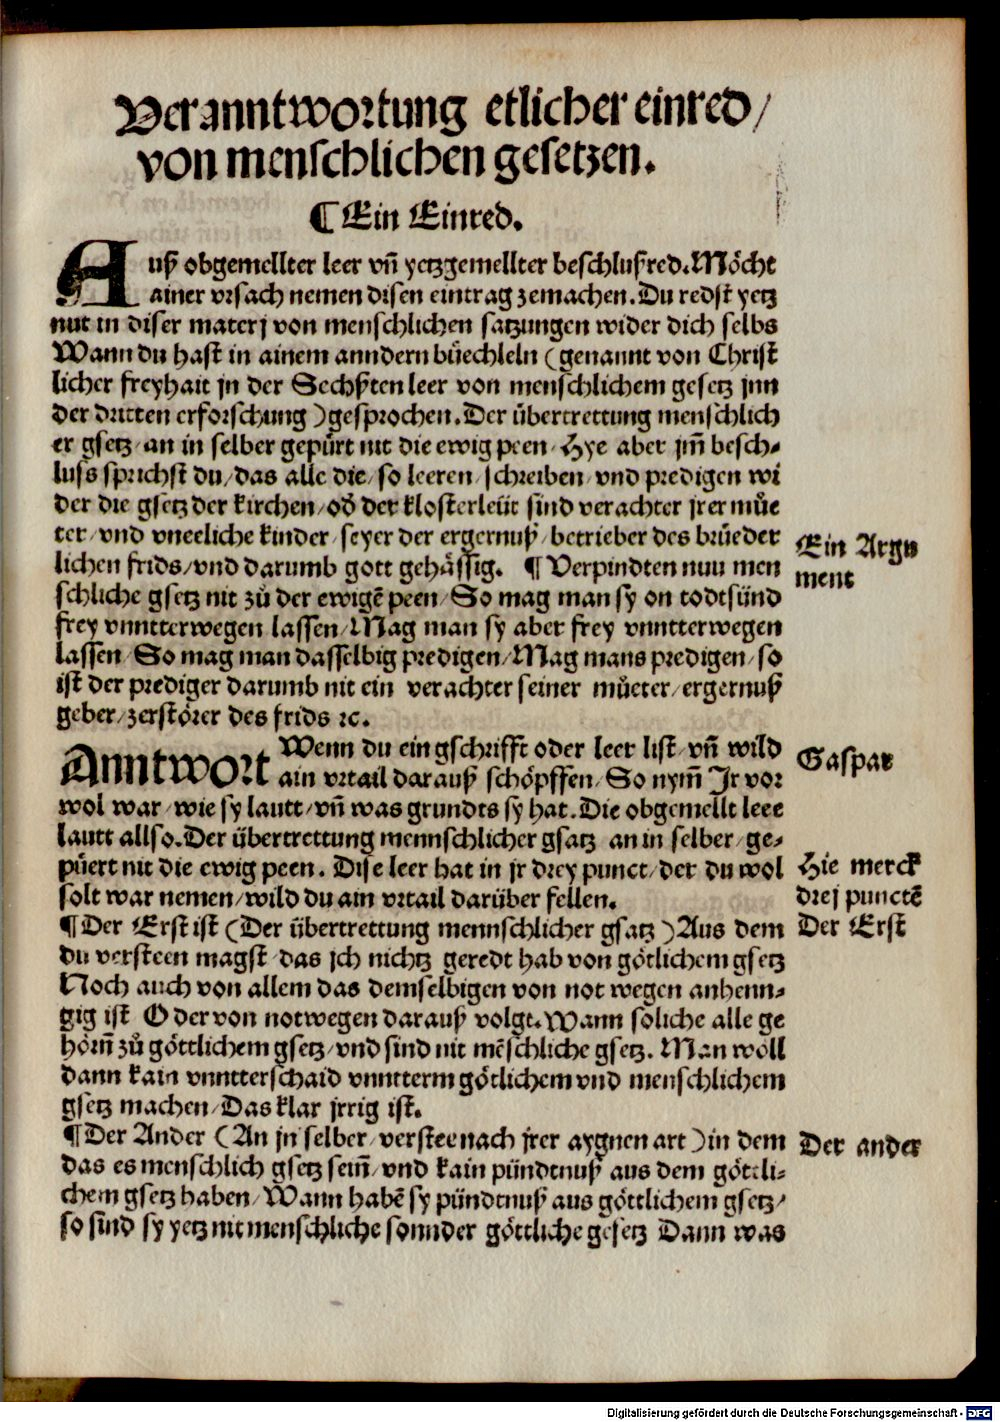 Veranntwortung etlicher einred/
von menschlichen gesetzen.
¶ Ein Einred.
Auß obgemellter leer vñ yetzgemellter beschlußred. Möcht
ainer vrsach nemen disen eintrag zemachen. Du redst yetz
nut in diser materj von menschlichen satzungen wider dich selbs
Wann du hast in ainem anndern büechleln (genannt von Christ
licher freyhait jn der Sechßten leer von menschlichem gesetz jnn
der dritten erforschung) gesprochen. Der übertrettung menschlich
er gsetz/ an in selber gepürt nit die ewig peen/ Hye aber jm̃ besch⸗
luss sprichst du/ das alle die/ so leeren/ schreiben/ vnd predigen wi
der die gsetz der kirchen/ od̉ der klosterleüt sind verachter jrer můe
ter/ vnd vneeliche kinder/ seyer der ergernuß/ betrieber des brůeder
lichen frids/ vnd darumb gott gehåssig. ¶ Verpindten nuu men
schliche gsetz nit zů der ewigẽ peen/ So mag man sy on todtsünd
frey vnntterwegen lassen/ Mag man sy aber frey vnntterwegen
lassen/ So mag man dasselbig predigen/ Mag mans predigen/ so
ist der prediger darumb nit ein verachter seiner můeter/ ergernuß
geber/ zerstörer des frids ꝛc.
Ein Argu
ment
Anntwort Wenn du ein gschrifft oder leer list/ vñ wild
ain vrtail darauß schöpffen/ So nym̃ Jr vor
wol war/ wie sy lautt/ vñ was grundts sy hat. Die obgemellt leer
lautt allso. Der übertrettung mennschlicher gsatz an in selber/ ge⸗
püert nit die ewig peen. Dise leer hat in jr drey punct/ der du wol
solt war nemen/ wild du ain vrtail darüber fellen.
Gaspar
Hie merck
drej punctẽ
¶ Der Erst ist (Der übertrettung mennschlicher gsatz) Aus dem
du versteen magst/ das jch nichtz geredt hab von götlichem gsetz
Noch auch von allem das demselbigen von not wegen anhenn⸗
gig ist Oder von notwegen darauß volgt. Wann soliche alle ge
hörñ zů göttlichem gsetz/ vnd sind nit mẽschliche gsetz. Man wöll
dann kain vnntterschaid vnntterm götlichem vnd menschlichem
gsetz machen/ Das klar jrrig ist.
Der Erst
¶ Der Ander (An jn selber/ verstee nach jrer aygnen art) in dem
das es menschlich gsetz seiñ/ vnd kain pündtnuß aus dem göttli⸗
chem gsetz haben/ Wann habẽ sy pündtnuß aus göttlichem gsetz/
so sind sy yetz nit menschliche sonnder göttliche gesetz Dann was
Der ander
Digitalisierung gefördert durch die Deutsche Forschungsgemeinschaft - DFG